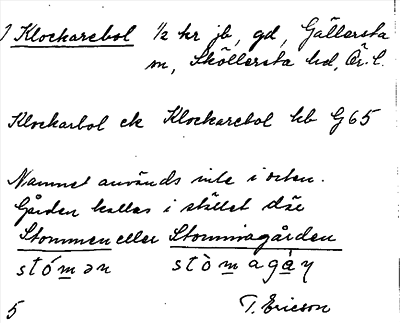 1 Klockarebol 1/2 kr jb, gd, Gällersta
sn, Sköllersta hd, Ör. l.
Klockarbol ek Klockarebol hb G65
Namnet används inte i orten.
Gården kallas i stället där
Stommen eller Stommagården
stó̱man stòmagày
5 T. Ericson